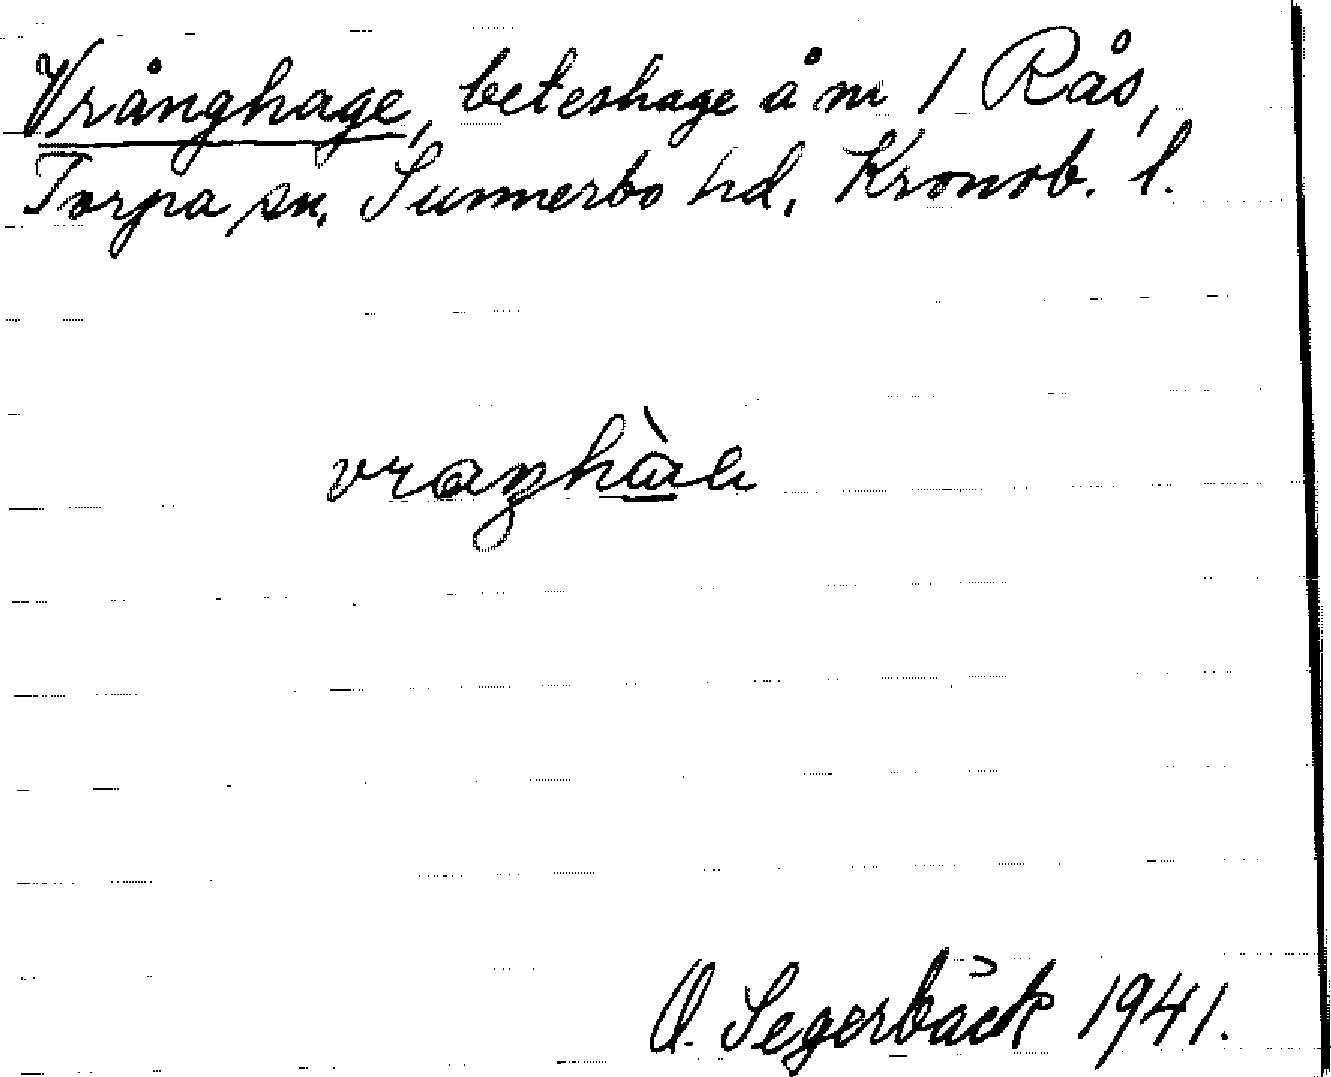 Vrånghage, beteshage å nr 1 Rås,
Torpa sn. Sunnerbo hd, Kronob. l.
O. Segerbäck 1941.